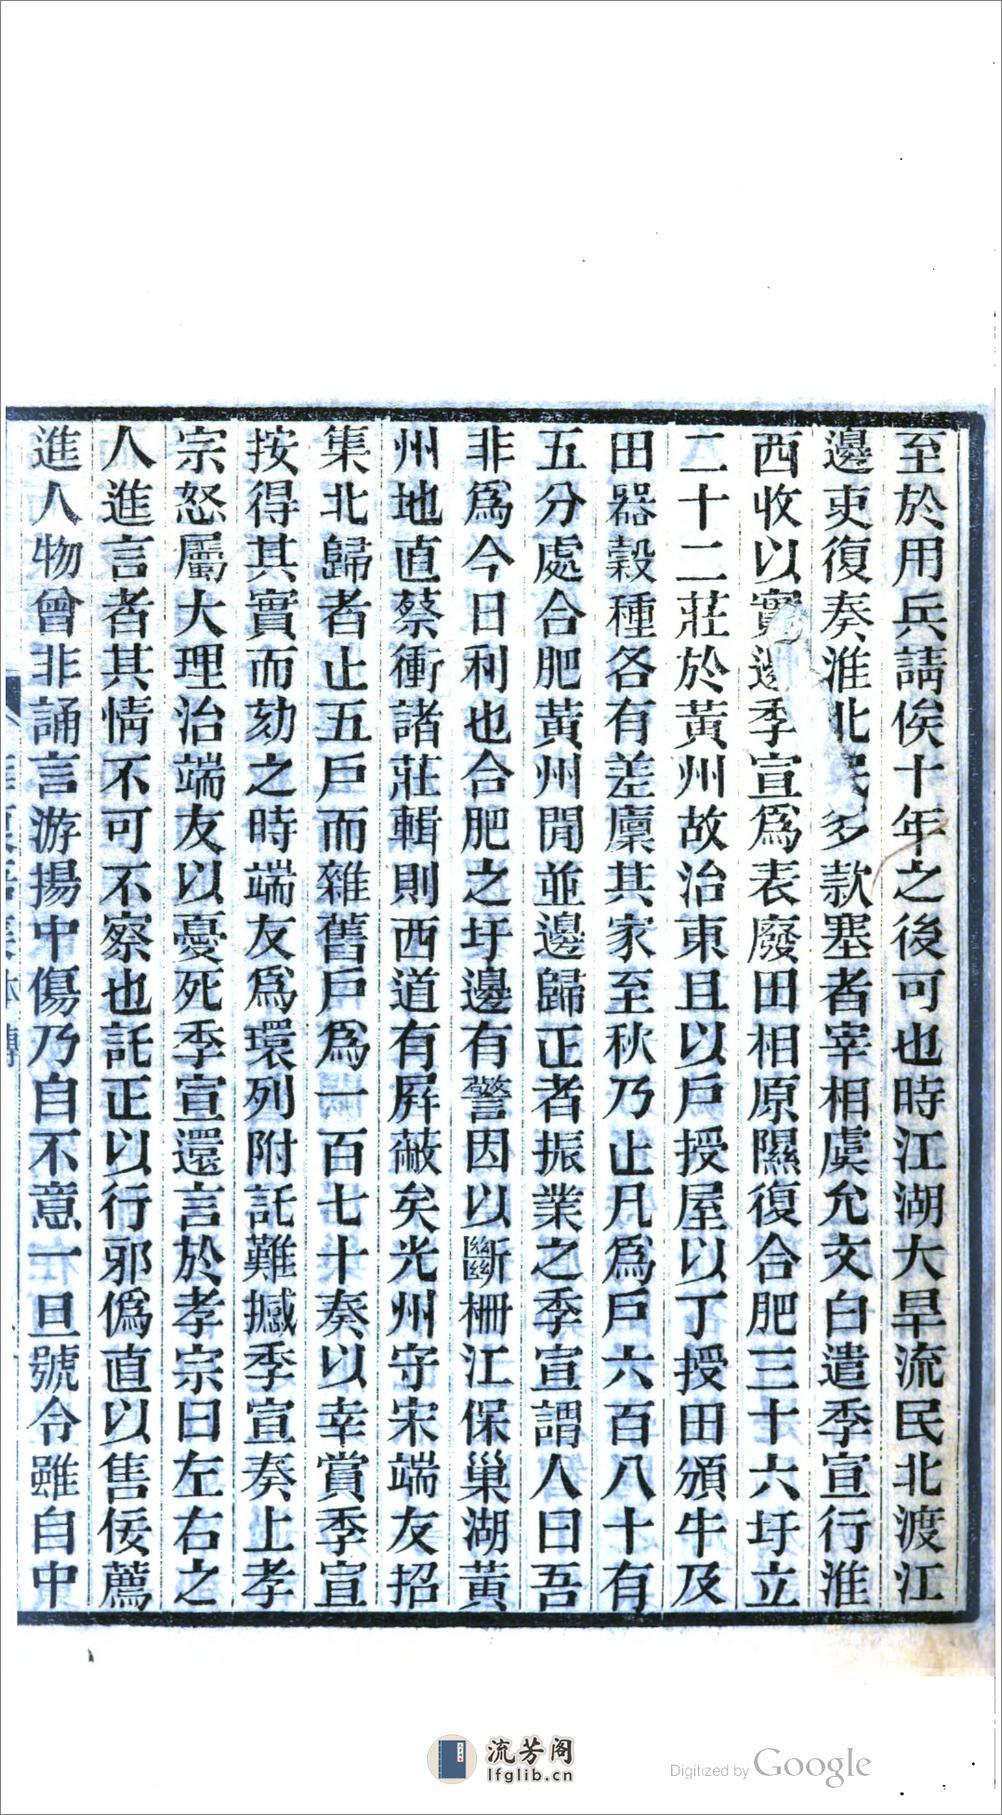 至於用兵請俟十年之後可也時江湖大旱流民北渡江
邊吏復奏淮北民多款塞者宰相虞允文白遣季宣行淮
西收以實邊季宣爲表廢田相原隰復合肥三十六圩立
二十二莊於黃州故治東且以戶授屋以丁授田頒牛及
田器穀種各有差廩其家至秋乃止凡爲戶六百八十有
五分處合肥黃州閒並邊歸正者振業之季宣謂人曰吾
非爲今日利也合肥之圩邊有警因以斷柵江保巢湖黃
州地直蔡衝諸莊輯則西道有屛蔽矣光州守宋端友招
集北歸者止五戶而雜舊戶爲一百七十奏以幸賞季宣
按得其實而劾之時端友爲環列附託難撼季宣奏上孝
宗怒屬大理治端友以憂死季宣還言於孝宗曰左右之
人進言者其情不可不察也託正以行邪僞直以售佞薦
進人物曾非誦言游揚中傷乃自不意一旦號令雖自中
流芳阁
lfglib.cn
Digitized by Google